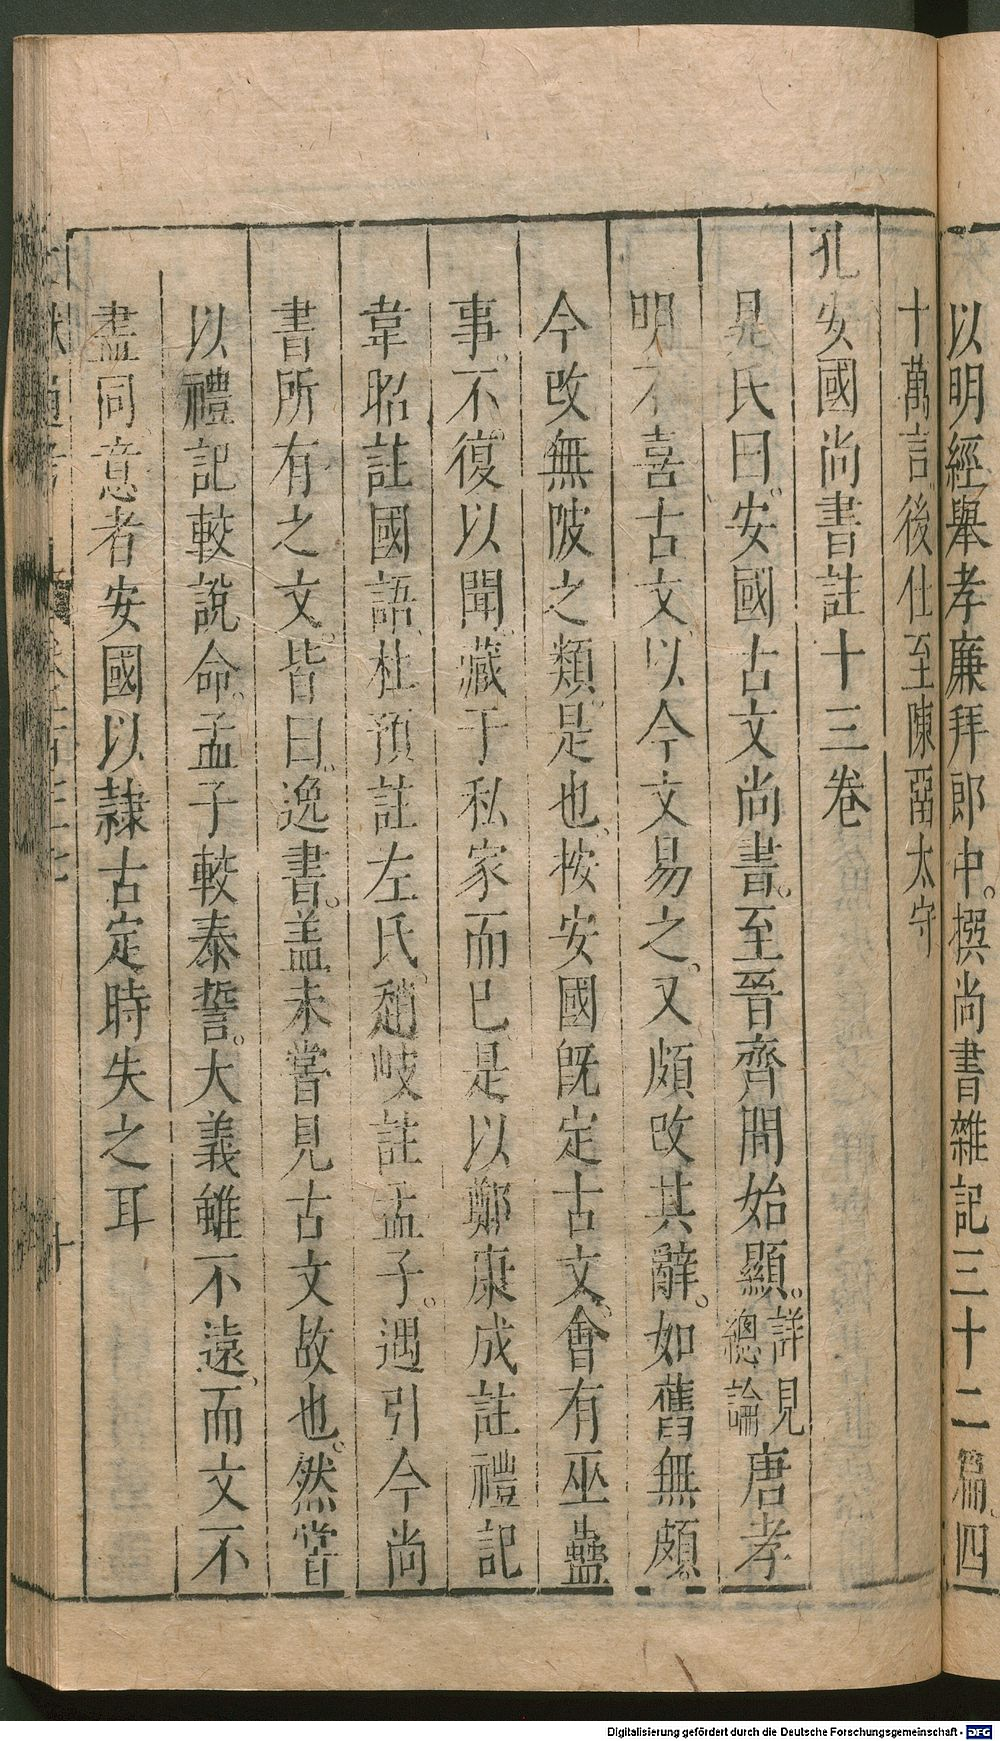 以明經舉孝廉拜郎中。撰尚書雜記三十二篇。四
十萬言。後仕至陳畱太守
孔安國尚書註十三卷
晁氏曰。安國古文尚書。至晉齊間始顯。詳見總論唐孝
明不喜古文。以今文易之。又頗改其辭。如舊無頗。
今改無陂之類。是也。按安國旣定古文。會有巫蠱
事。不復以聞。藏于私家而已。是以鄭康成註禮記
韋昭註國語。杜預註左氏。趙岐註孟子。遇引今尚
書所有之文。皆曰。逸書。盖未嘗見古文故也。然嘗
以禮記較說命。孟子較泰誓。大義雖不遠。而文不
盡同。意者安國以隷古定時失之耳
Digitalisierung gefördert durch die Deutsche Forschungsgemeinschaft - DFG